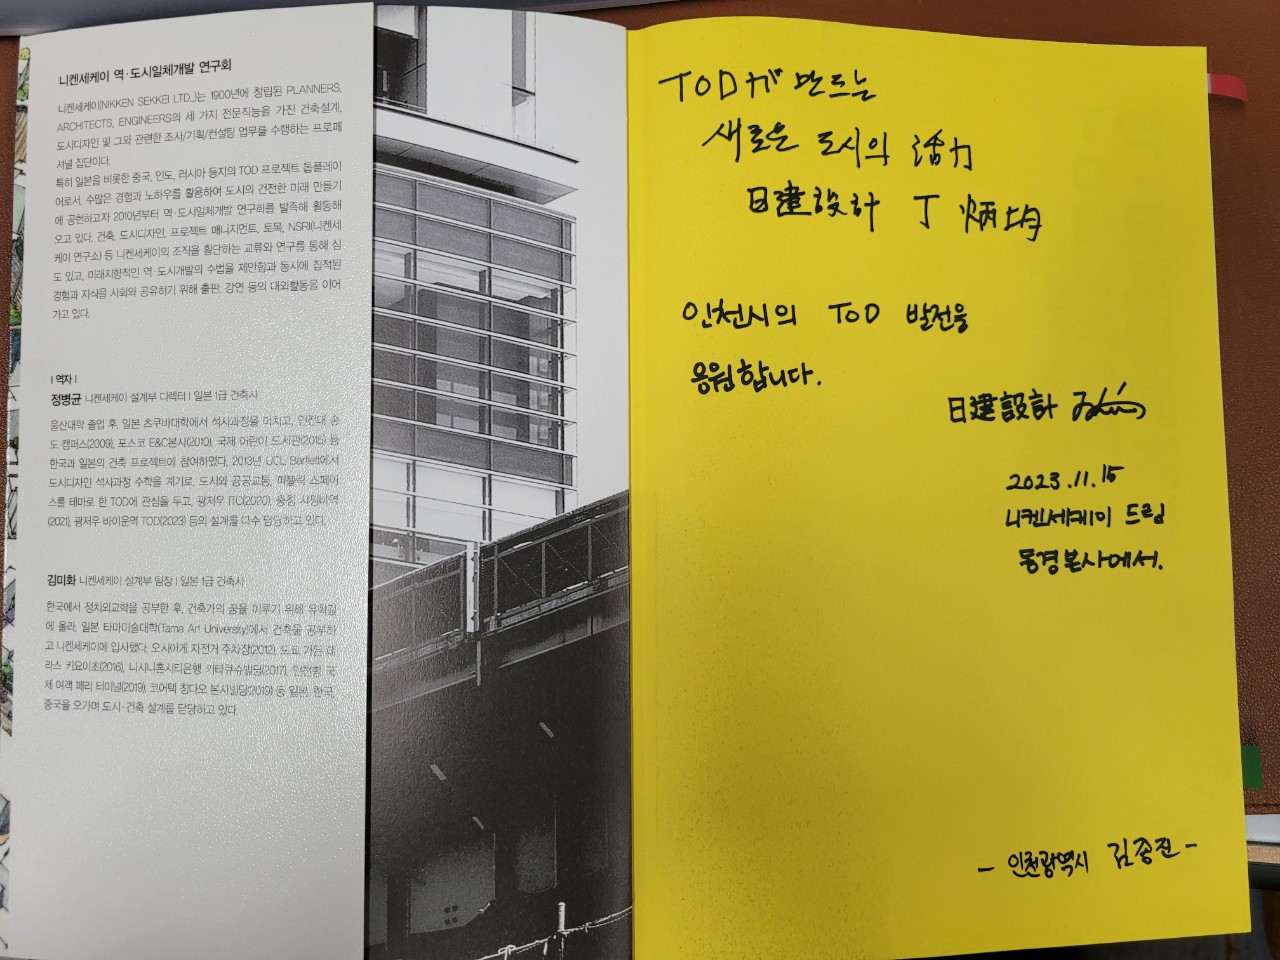 니켄세케이 역·도시일체개발 연구회
니켄세케이(NIKKEN SEKKEI LTD.,)는 1900년에 창립된 PLANNERS,
ARCHITECTS, ENGINEERS의 세 가지 전문직능을 가진 건축설계,
도시디자인 및 그와 관련한 조사/기획/컨설팅 업무를 수행하는 프로페
셔널 집단이다.
특히 일본을 비롯한 중국, 인도, 러시아 등지의 TOD 프로젝트 톱플레이
어로서, 수많은 경험과 노하우를 활용하여 도시의 건전한 미래 만들기
에 공헌하고자 2010년부터 역·도시일체개발 연구회를 발족해 활동해
오고 있다. 건축, 도시디자인, 프로젝트 매니지먼트, 토목, NSRI(니켄세
케이 연구소) 등 니켄세케이의 조직을 횡단하는 교류와 연구를 통해 심
도 있고, 미래지향적인 역·도시개발의 수법을 제안함과 동시에 집적된
경험과 지식을 사회와 공유하기 위해 출판, 강연 등의 대외활동을 이어
가고 있다.
| 역자 |
정병균 니켄세케이 설계부 디렉터 | 일본 1급 건축사
울산대학 졸업 후, 일본 츠쿠바대학에서 석사과정을 마치고, 인천대 송
도 캠퍼스(2009), 포스코 E&C본사(2010), 국제 어린이 도서관(2015) 등
한국과 일본의 건축 프로젝트에 참여하였다. 2013년 UCL Bartlett에서
도시디자인 석사과정 수학을 계기로, 도시와 공공교통, 퍼블릭 스페이
스를 테마로 한 TOD에 관심을 두고, 광저우 ITC(2020), 충칭 사핑바역
(2021), 광저우 바이운역 TOD(2023) 등의 설계를 다수 담당하고 있다.
김미화 니켄세케이 설계부 팀장 | 일본 1급 건축사
한국에서 정치외교학을 공부한 후, 건축가의 꿈을 이루기 위해 유학길
에 올라, 일본 타마미술대학(Tama Art University)에서 건축을 공부하
고 니켄세케이에 입사했다. 오시아게 자전거 주차장(2012), 도쿄 가든 테
라스 키오이초(2016), 니시니혼시티은행 키타큐슈빌딩(2017), 인천항 국
제 여객 페리 터미널(2019), 코어텍 칭다오 본사빌딩(2019) 등 일본, 한국,
중국을 오가며 도시·건축 설계를 담당하고 있다.
TODが 만드는
새로운 도시의 活力
日建設計 丁 炳均
인천시의 TOD 발전을
응원합니다.
日建設計
2023.11.15
니켄세케이 드림
동경본사에서.
- 인천광역시 김종진 -